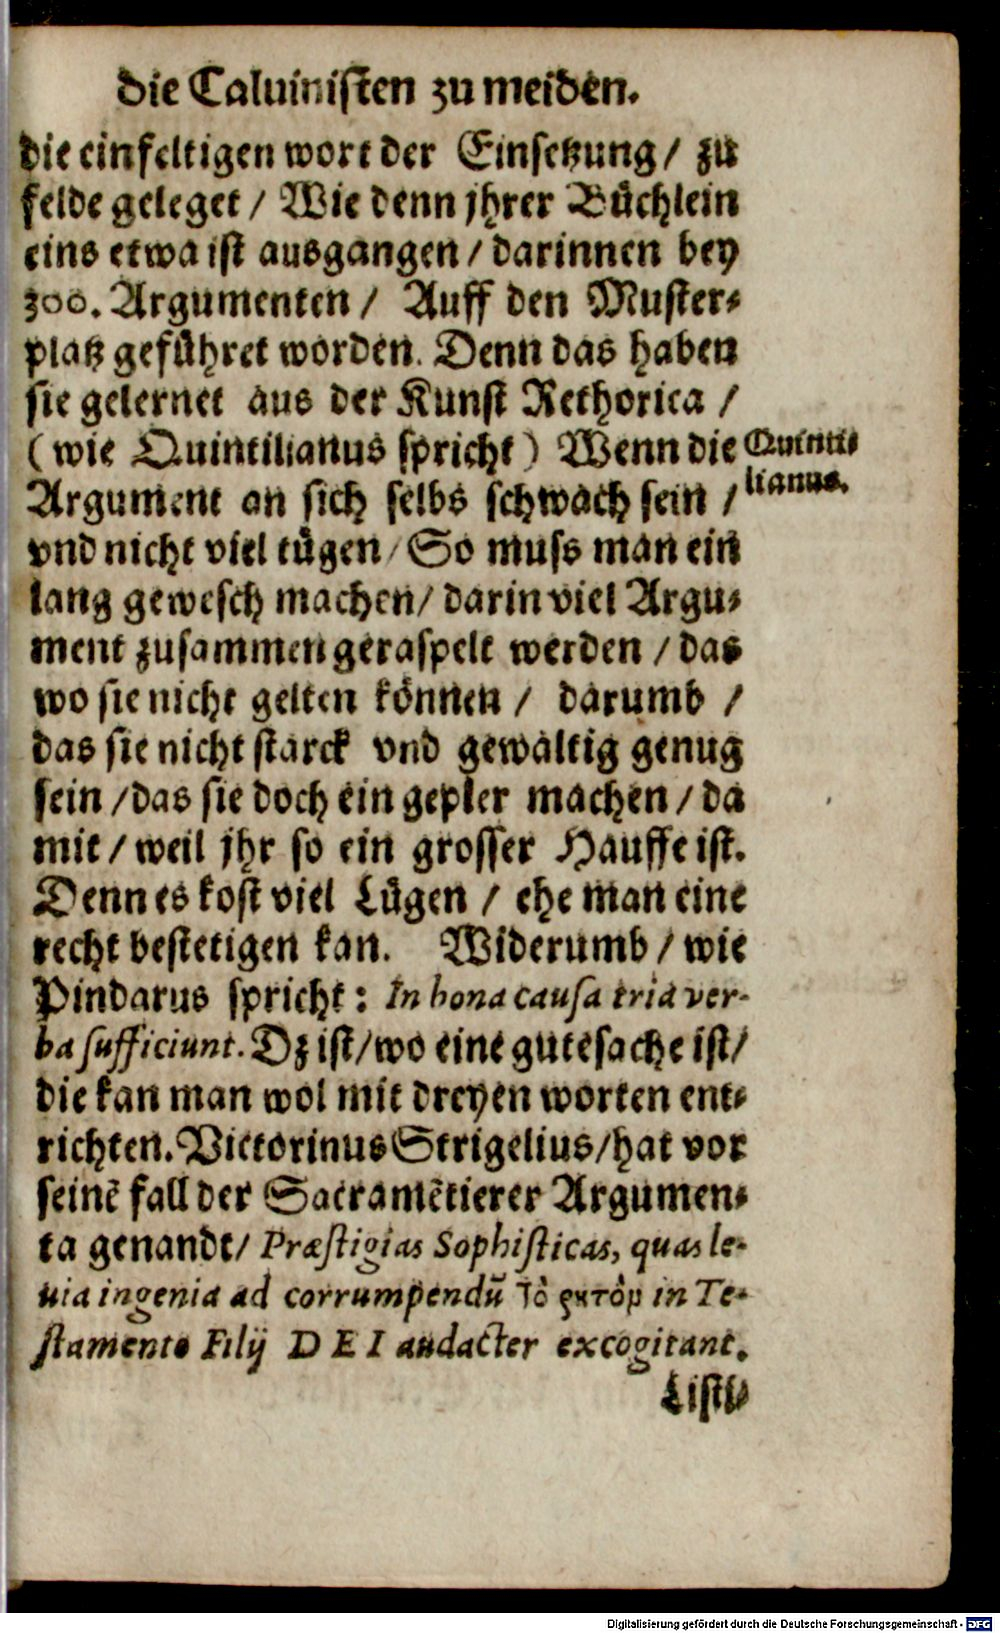 die Caluinisten zu meiden.
die einfeltigen wort der Einsetzung / zu
felde geleget / Wie denn jhrer Bůchlein
eins etwa ist ausgangen / darinnen bey
300. Argumenten / Auff den Muster⸗
platz gefůhret worden. Denn das haben
sie gelernet aus der Kunst Rethorica /
(wie Quintilianus spricht) Wenn die
Quinti⸗
lianus.
Argument an sich selbs schwach sein /
vnd nicht viel tůgen / So muss man ein
lang gewesch machen / darin viel Argu⸗
ment zusammen geraspelt werden / das
wo sie nicht gelten kőnnen / darumb /
das sie nicht starck vnd gewaltig genug
sein / das sie doch ein gepler machen / da
mit / weil jhr so ein grosser Hauffe ist.
Denn es kost viel Lůgen / ehe man eine
recht bestetigen kan. Widerumb / wie
Pindarus spricht: In bona causa tria ver-
ba sufficiunt. Dz ist / wo eine gute sache ist /
die kan man wol mit dreyen worten ent⸗
richten. Victorinus Strigelius / hat vor
seinē fall der Sacramētierer Argumen⸗
ta genandt / Præstigias Sophisticas, quas le-
uia ingenia ad corrumpendū τὸ ῥητὸμ in Te-
stamento Filij DEI audacter excogitant.
Listi⸗
Digitalisierung gefördert durch die Deutsche Forschungsgemeinschaft - DFG